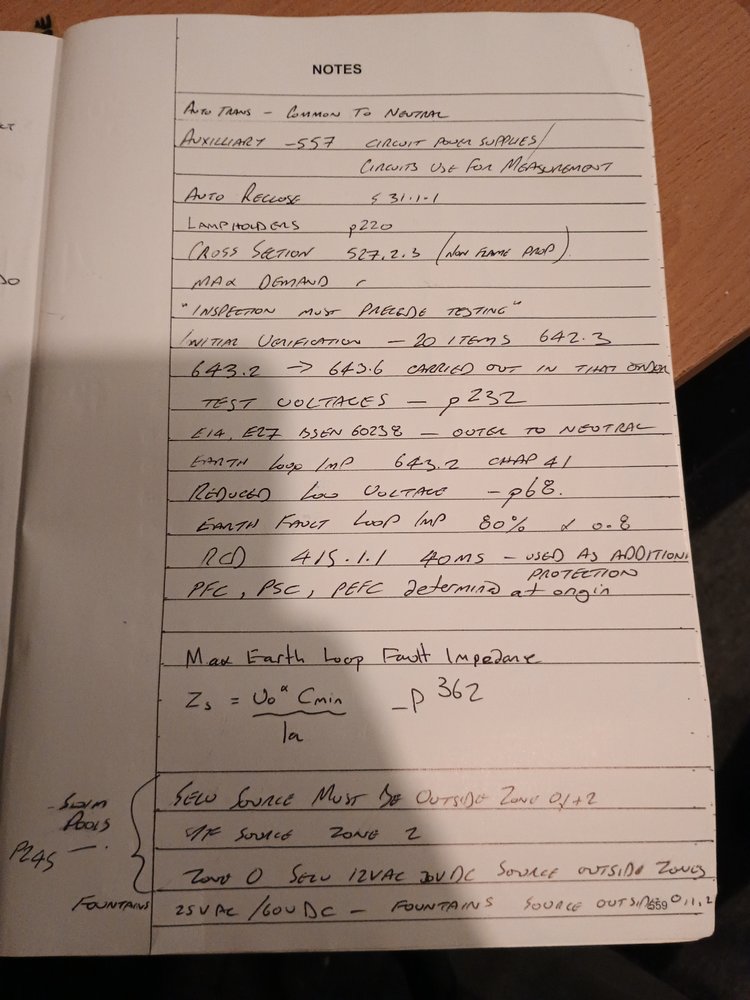 NOTES
AUTO TRANS – COMMON TO NEUTRAL
AUXILLIARY – 557 CIRCUIT POWER SUPPLIES/
CIRCUITS USE FOR MEASUREMENT
AUTO RECLOSE 531.1.1
LAMPHOLDERS p220
CROSS SECTION 527.2.3 (NON FLAME PROP)
MAX DEMAND
"INSPECTION MUST PRECEDE TESTING"
INITIAL VERIFICATION – 20 ITEMS 642.3
643.2 → 643.6 CARRIED OUT IN THAT ORDER
TEST VOLTAGES – p232
E14, E27 BSEN 60238 – OUTER TO NEUTRAL
EARTH LOOP IMP 643.2 CHAP 41
REDUCED LOW VOLTAGE – p68.
EARTH FAULT LOOP IMP 80% x 0.8
RCD 415.1.1 40MS – USED AS ADDITION
PROTECTION
PFC, PSC, PEFC determined at origin
Max Earth Loop Fault Impedance
Zs = Uo x Cmin – p 362
Ia
SWIM
POOLS
P245
SELV SOURCE MUST BE OUTSIDE ZONE 0,1+2
SOURCE ZONE 2
ZONE 0 SELV 12VAC 30VDC SOURCE OUTSIDE ZONES
FOUNTAINS 25VAC /60VDC – FOUNTAINS SOURCE OUTSIDE 0,1,2
559